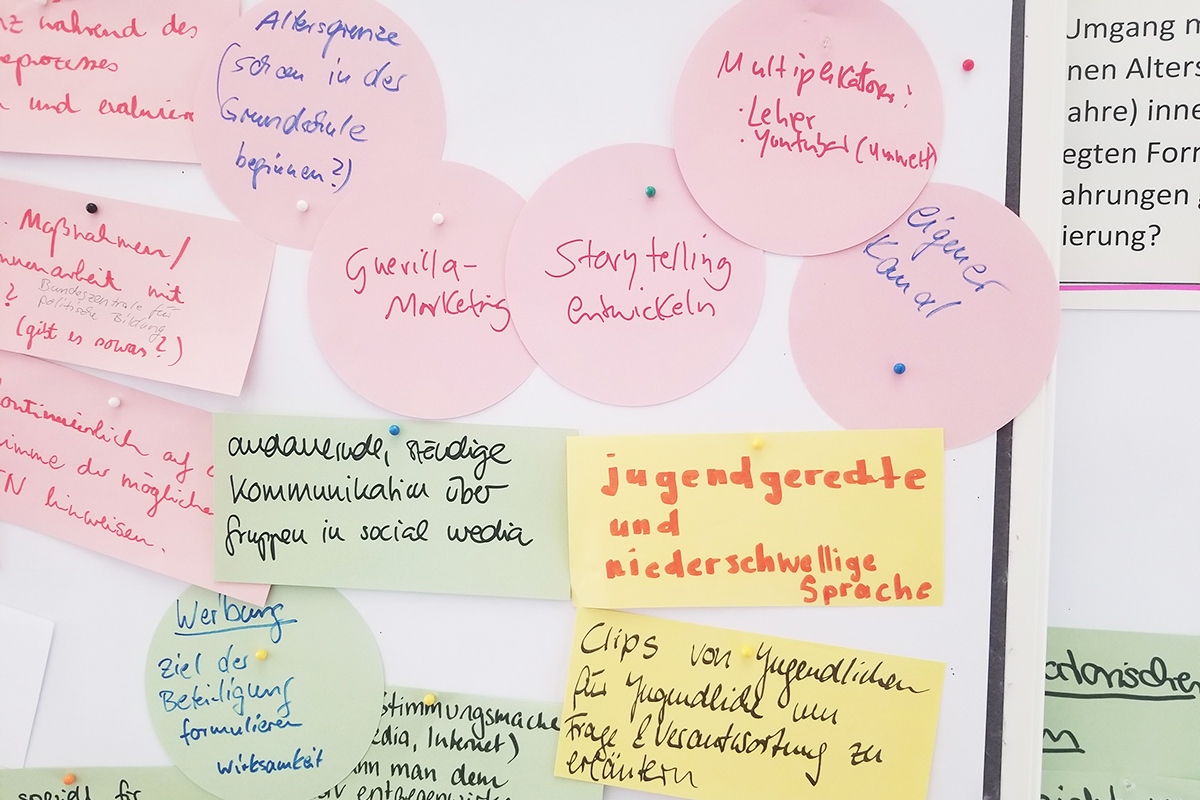 während des
und evaluieren
Altersgrenze
(schon in der
Grundschule
beginnen?)
Multiplikatoren:
· Lehrer
· Youtuber (Umwelt)
Umgang m
nen Alters
ahre) inne
egten Forr
ahrungen g
ierung?
Maßnahmen/
nnenarbeit mit
?
Bundeszentrale für
politische Bildung
(gibt es sowas?)
Guerilla-
Marketing
Storytelling
entwickeln
eigener
Kanal
ontinuierlich auf
imme der mögliche
TN hinweisen.
andauernde, ständige
Kommunikation über
Gruppen in social media
jugendgerechte
und
niederschwellige
Sprache
Werbung
Ziel der
Beteiligung
formulieren
wirksamkeit
stimmungsmache
edia, Internet)
nn man dem
entgegenwirk
Clips von Jugendlichen
für Jugendliche um
Frage & Verantwortung zu
erläutern
speziell für
atorischen